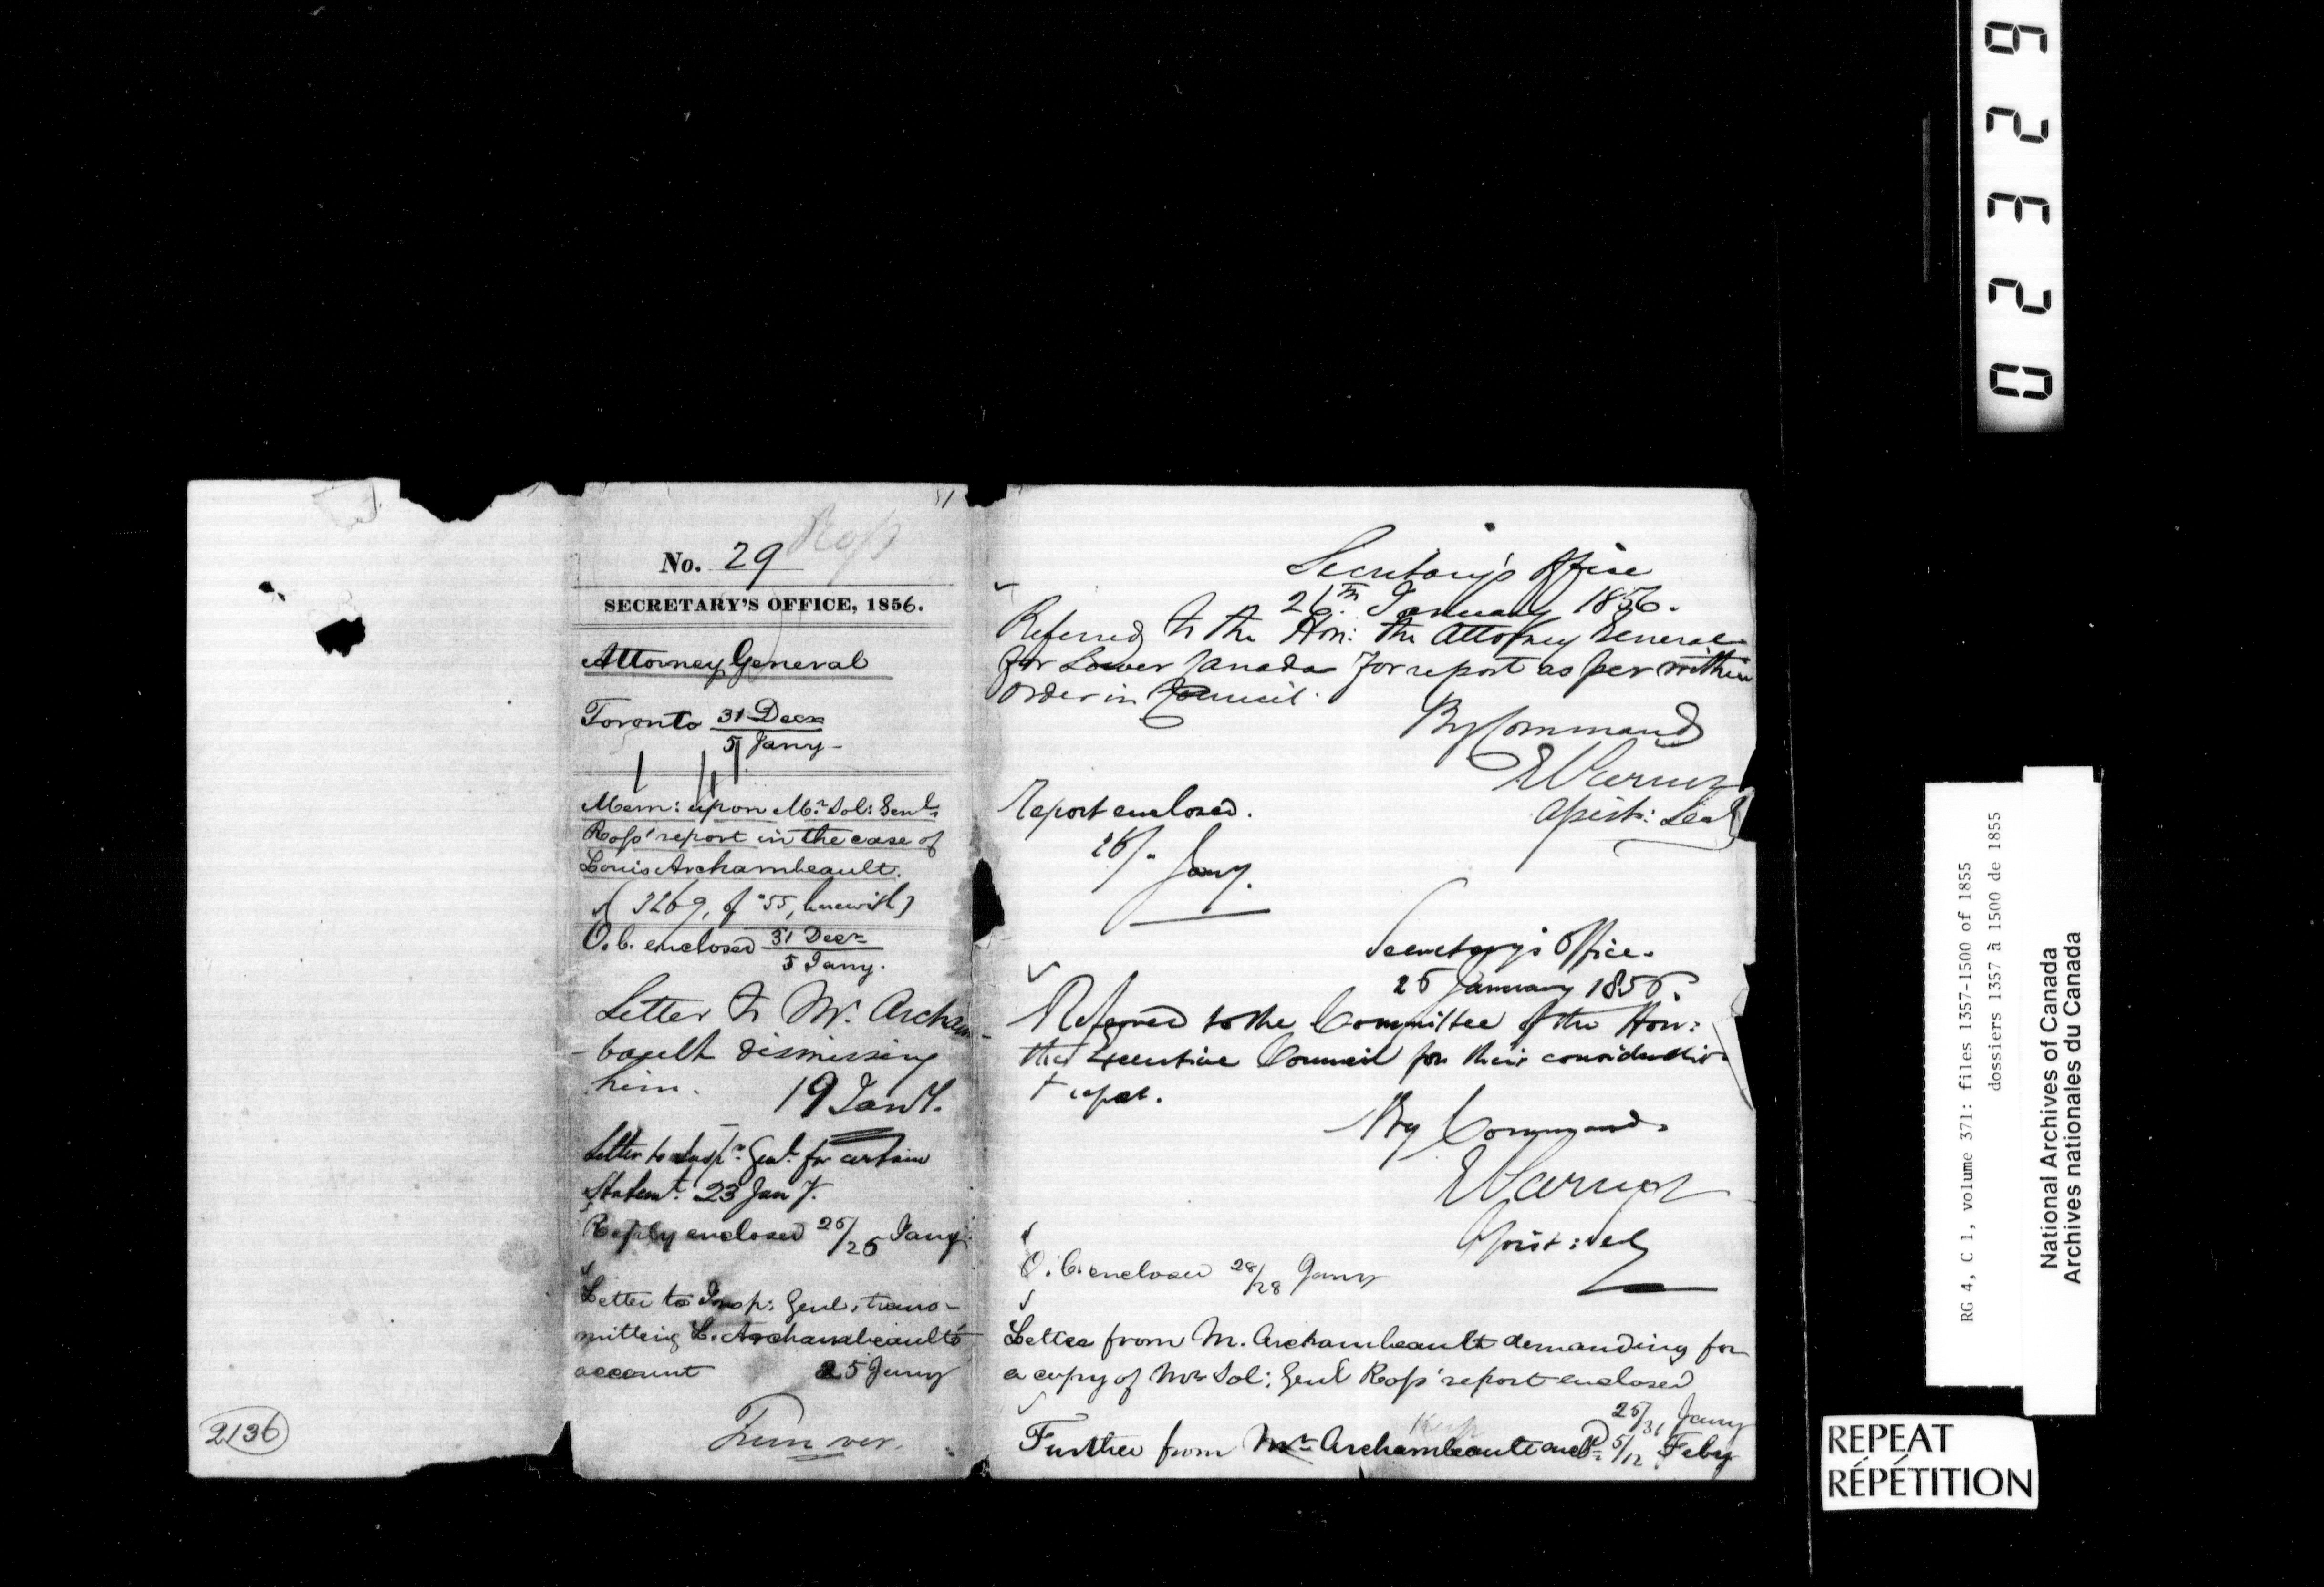 Ross
51
No. 29
SECRETARY'S OFFICE, 1856.
Attorney General
Toronto 31 Decr
5 Jany-
Mem: upon Mr. Sol: Genls
Ross' report in the case of
Louis Archambeault.
( 3269, of '55, herewith)
O.C. enclosed 31 Decr
5 Jany.
Letter to Mr. Archam-
-bault dismissing
him. 19 Jany.
Letter to Inspr. Genl. for certain
Statemt. 23 Jany.
Reply enclosed 25/25 Jany.
Letter to Insp: Genl, trans-
mitting L. Archambeault's
account 25 Jany
Turn over.
2136
Secretary's Office
26th January 1856.
Referred to the Hon: the Attorney General
for Lower Canada for report as per within
order in Council.
By Command
Report enclosed.
26/. Jany.
Secretary's Office.
26 January 1856.
Referred to the Committee of the Hon:
the Executive Council for their consideration
+ report.
By Command.
O.C. enclosed 28/28 Jany
Letter from M. Archambeault demanding for
a copy of Mr Sol: Genl Ross' report enclosed
25/31 Jany
Further from Mr Archambeault encd. 5/12 Feby
02326
RG 4, C 1, volume 371: files 1357-1500 of 1855
dossiers 1357 à 1500 de 1855
National Archives of Canada
Archives nationales du Canada
REPEAT
RÉPÉTITION